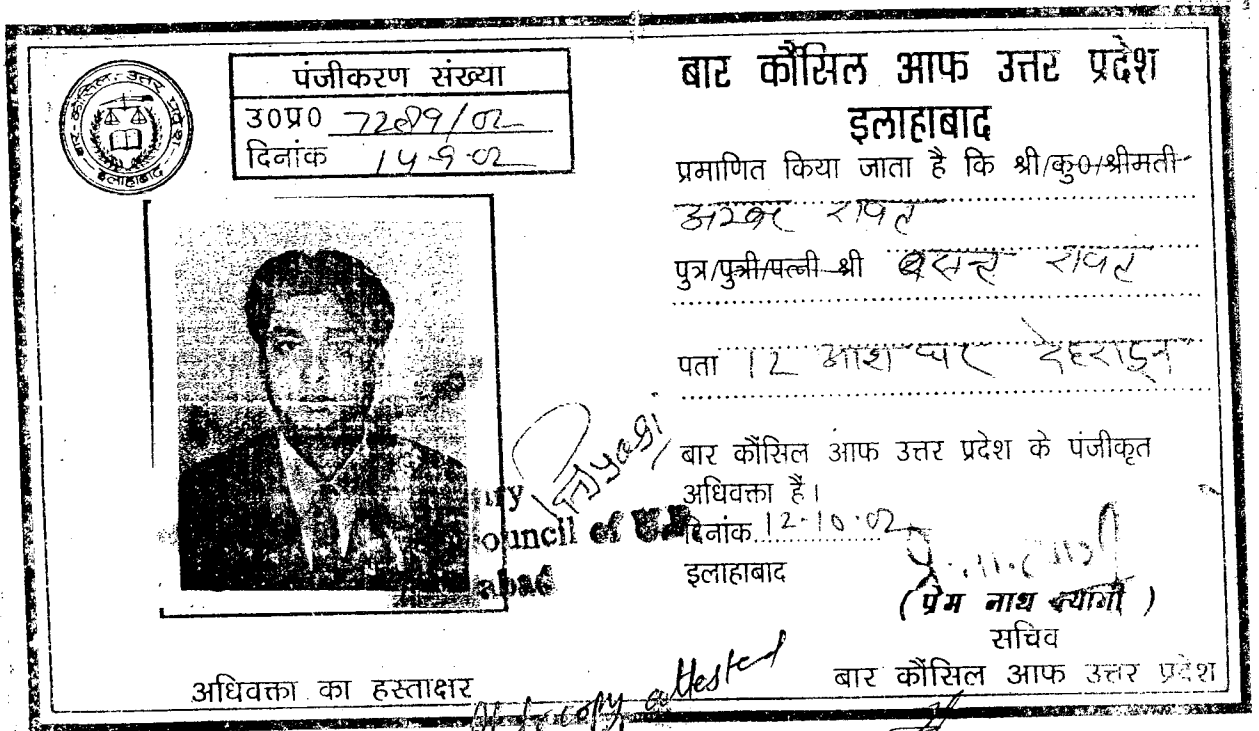 बार-कौंसिल-उत्तर प्रदेश-
इलाहाबाद
पंजीकरण संख्या
उ०प्र० 7289/02
दिनांक 14-9-02
बार कौंसिल आफ उत्तर प्रदेश
इलाहाबाद
प्रमाणित किया जाता है कि श्री/कु०/श्रीमती
रावत
पुत्र/पुत्री/पत्नी श्री बसन्त रावत
पता 12 देहरादून
बार कौंसिल आफ उत्तर प्रदेश के पंजीकृत
अधिवक्ता हैं।
दिनांक 12-10-02
इलाहाबाद
(प्रेम नाथ त्यागी)
सचिव
बार कौंसिल आफ उत्तर प्रदेश
ouncil of U.P.
abad
अधिवक्ता का हस्ताक्षर
copy attested